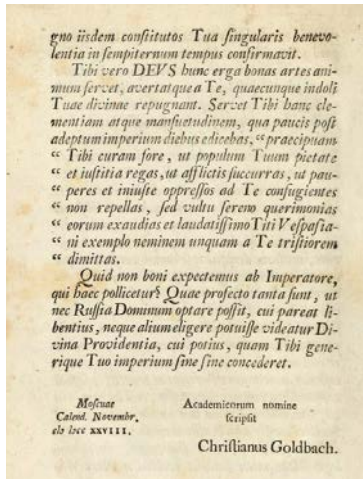 gno iisdem conſtitutos Tua ſingularis benevo-
lentia in ſempiternum tempus confirmavit.
Tibi vero DEVS hunc erga bonas artes ani-
mum ſervet, avertatque a Te, quaecunque indoli
Tuae divinae repugnant. Servet Tibi hanc cle-
mentiam atque manſuetudinem, qua paucis poſt
adeptum imperium diebus edicebas, “praecipuam
“ Tibi curam fore, ut populum Tuum pietate
“ et iuſtitia regas, ut afflictis ſuccurras, ut pau-
“ peres et iniuſte oppreſſos ad Te confugientes
“ non repellas, ſed vultu ſereno querimonias
“ eorum exaudias et laudatiſſimo Titi Veſpaſia-
“ ni exemplo neminem unquam a Te triſtiorem
“ dimittas.
Quid non boni expectemus ab Imperatore,
qui haec pollicetur? Quae profecto tanta ſunt, ut
nec Ruſſia Dominum optare poſſit, cui pareat li-
bentius, neque alium eligere potuiſſe videatur Di-
vina Providentia, cui potius, quam Tibi gene-
rique Tuo imperium ſine fine concederet.
Moſcuae
Calend. Novembr.
cIɔ Iɔcc XXVIII.
Academicorum nomine
ſcripſit
Chriſtianus Goldbach.